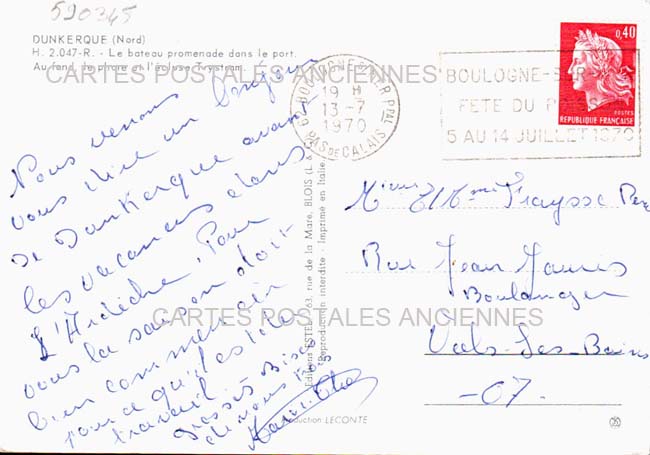 590345
DUNKERQUE (Nord)
H. 2.047-R. - Le bateau promenade dans le port.
Au fond, le phare et l'écluse Trystram.
CARTES POSTALES ANCIENNES
Nous venons
vous dire un bonjour
de Dunkerque avant
les vacances dans
l'Ardèche. Pour
vous la saison doit
bien commencer
pour ce qu'il est de
travail.
Grosses Bises
de nous tous
BOULOGNE-SUR-MER PPAL
19 H
13-7
1970
PAS DE CALAIS
BOULOGNE-SUR-
FETE DU P
5 AU 14 JUILLET 1970
0,40
POSTES
REPUBLIQUE FRANÇAISE
Editions ESTEL - 63, rue de la Mare, BLOIS (L. &
Reproduction interdite - Imprimé en Italie
Mieur et Mme Fraysse
Rue Jean Jaures
Boulanger
Vals-Les-Bains
-07-
CARTES POSTALES ANCIENNES
duction LECONTE